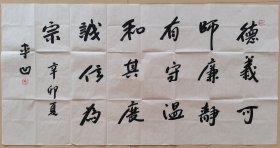 德義可
師廉靜
有守温
和其度
誠信為
宗
辛卯夏
平凹